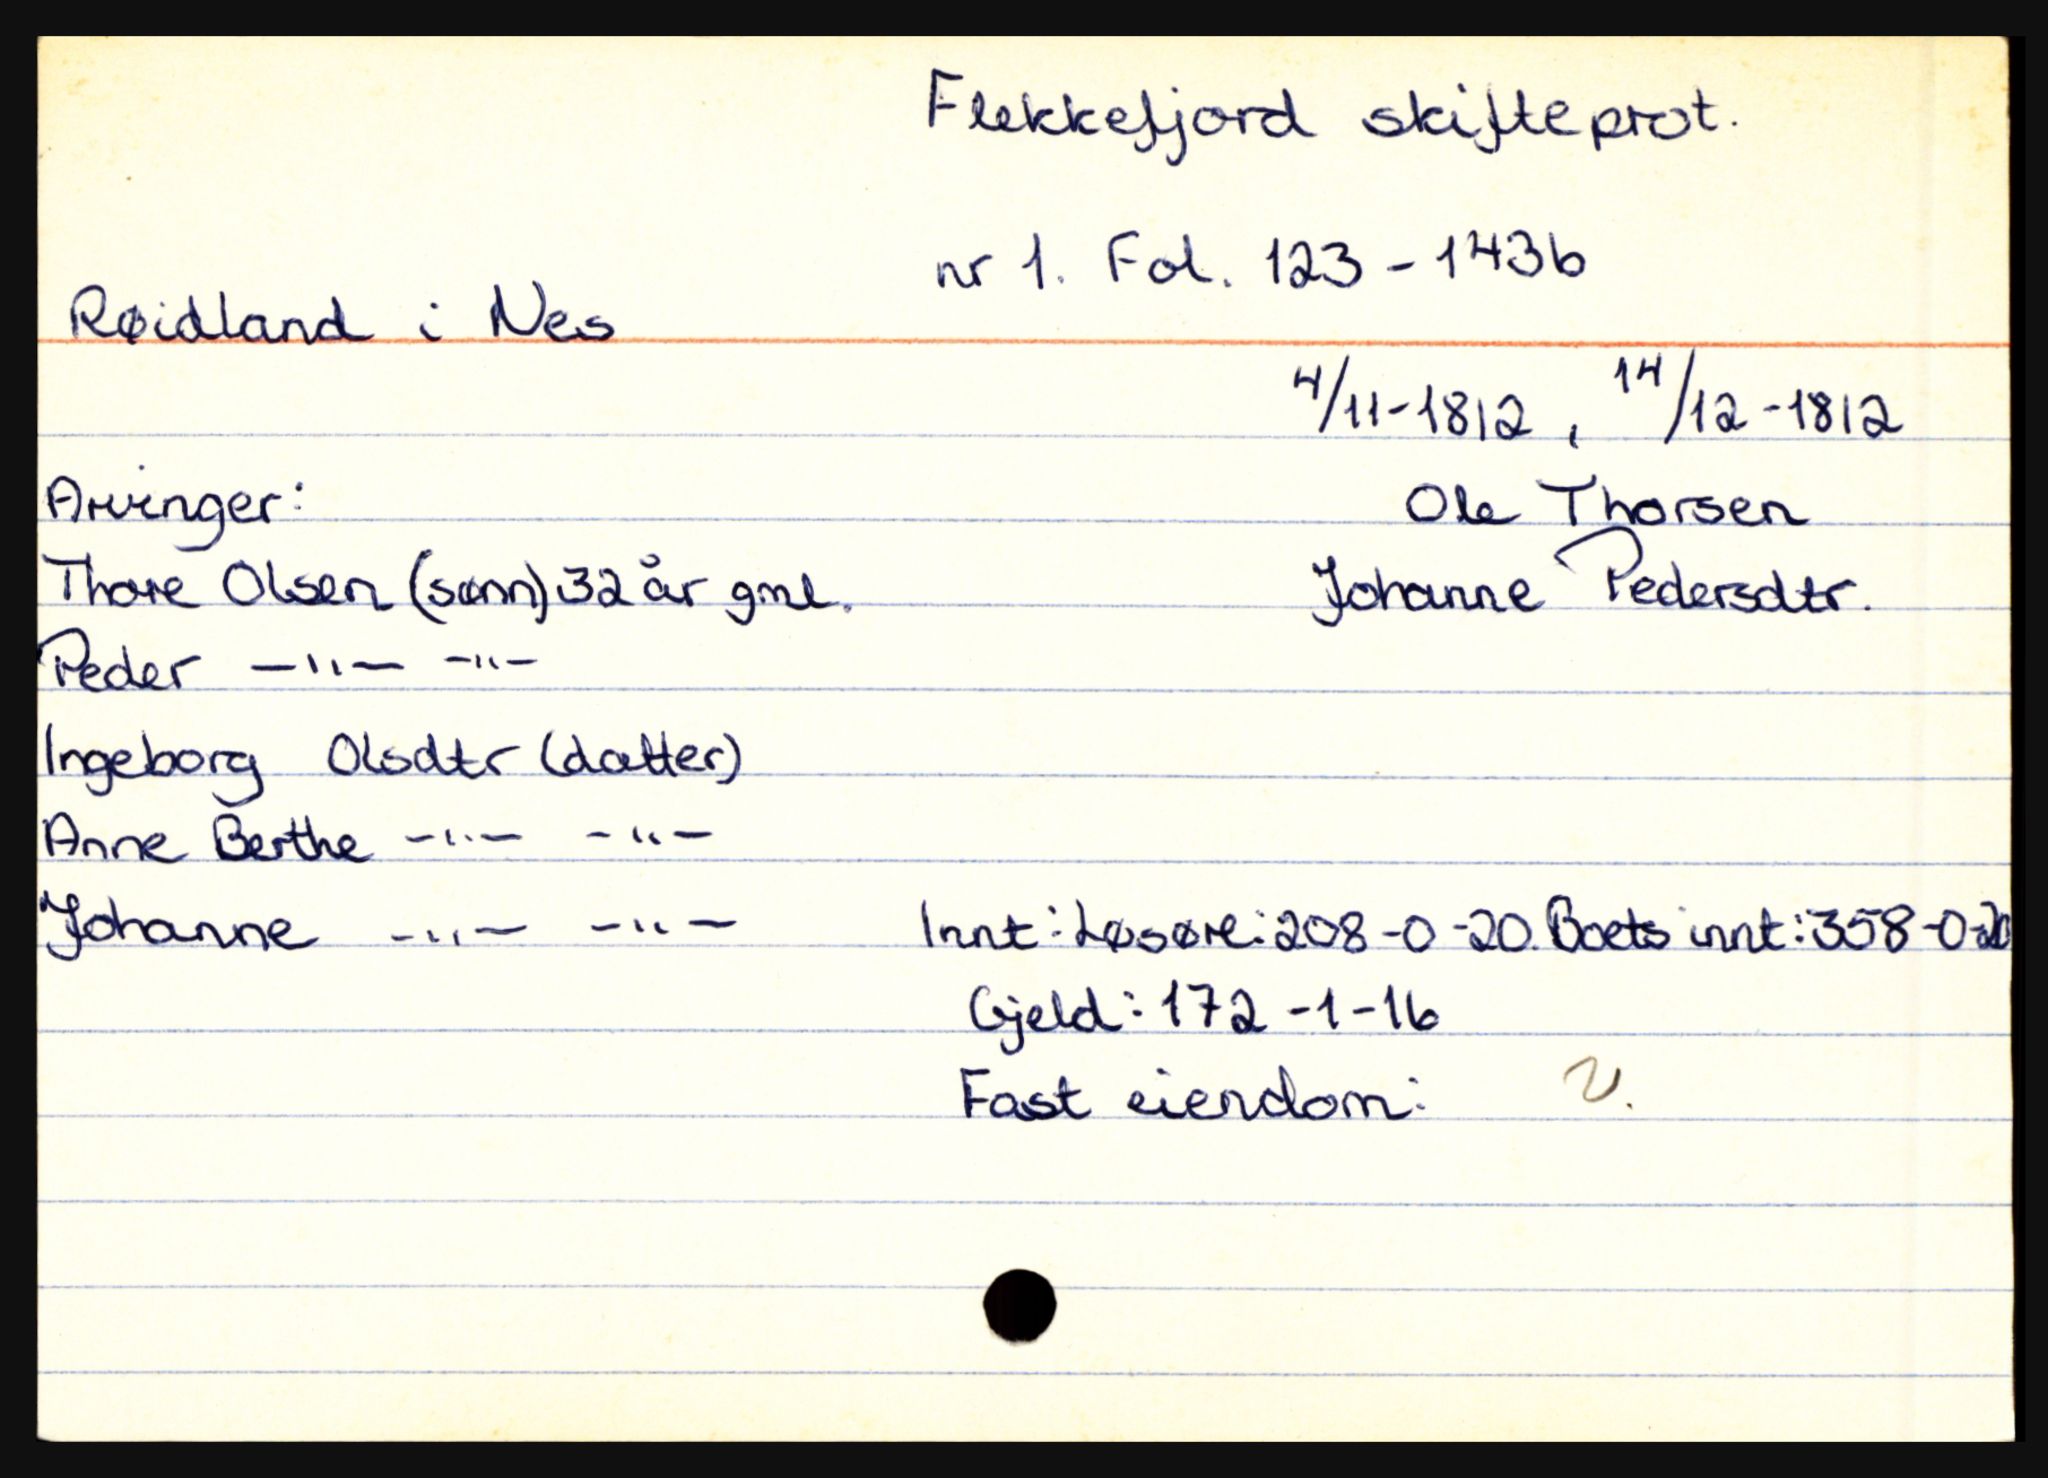 Flekkefjord skifteprot.
nr 1. Fol. 123 - 143b
Røidland i Nes
4/11-1812, 14/12-1812
Arvinger: Ole Thorsen
Thore Olsen (sønn) 32 år gml. Johanne Pedersdtr.
Peder -"- -"-
Ingeborg Olsdtr (datter)
Anne Berthe -"- -"-
Johanne -"- -"- Innt: Løsøre: 208-0-20. Boets innt: 358-0-20
Gjeld: 172-1-16
Fast eiendom: